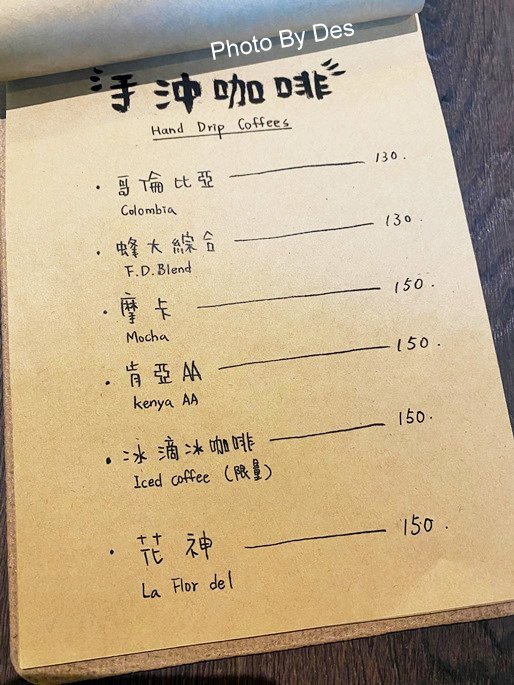 Photo By Des
手沖咖啡
Hand Drip Coffees
· 哥倫比亞 130.
Colombia
· 蜂大綜合 130.
F.D.Blend
· 摩卡 150.
Mocha
· 肯亞AA 150.
kenya AA
· 冰滴冰咖啡 150.
Iced coffee (限量)
· 花神 150.
La Flor del